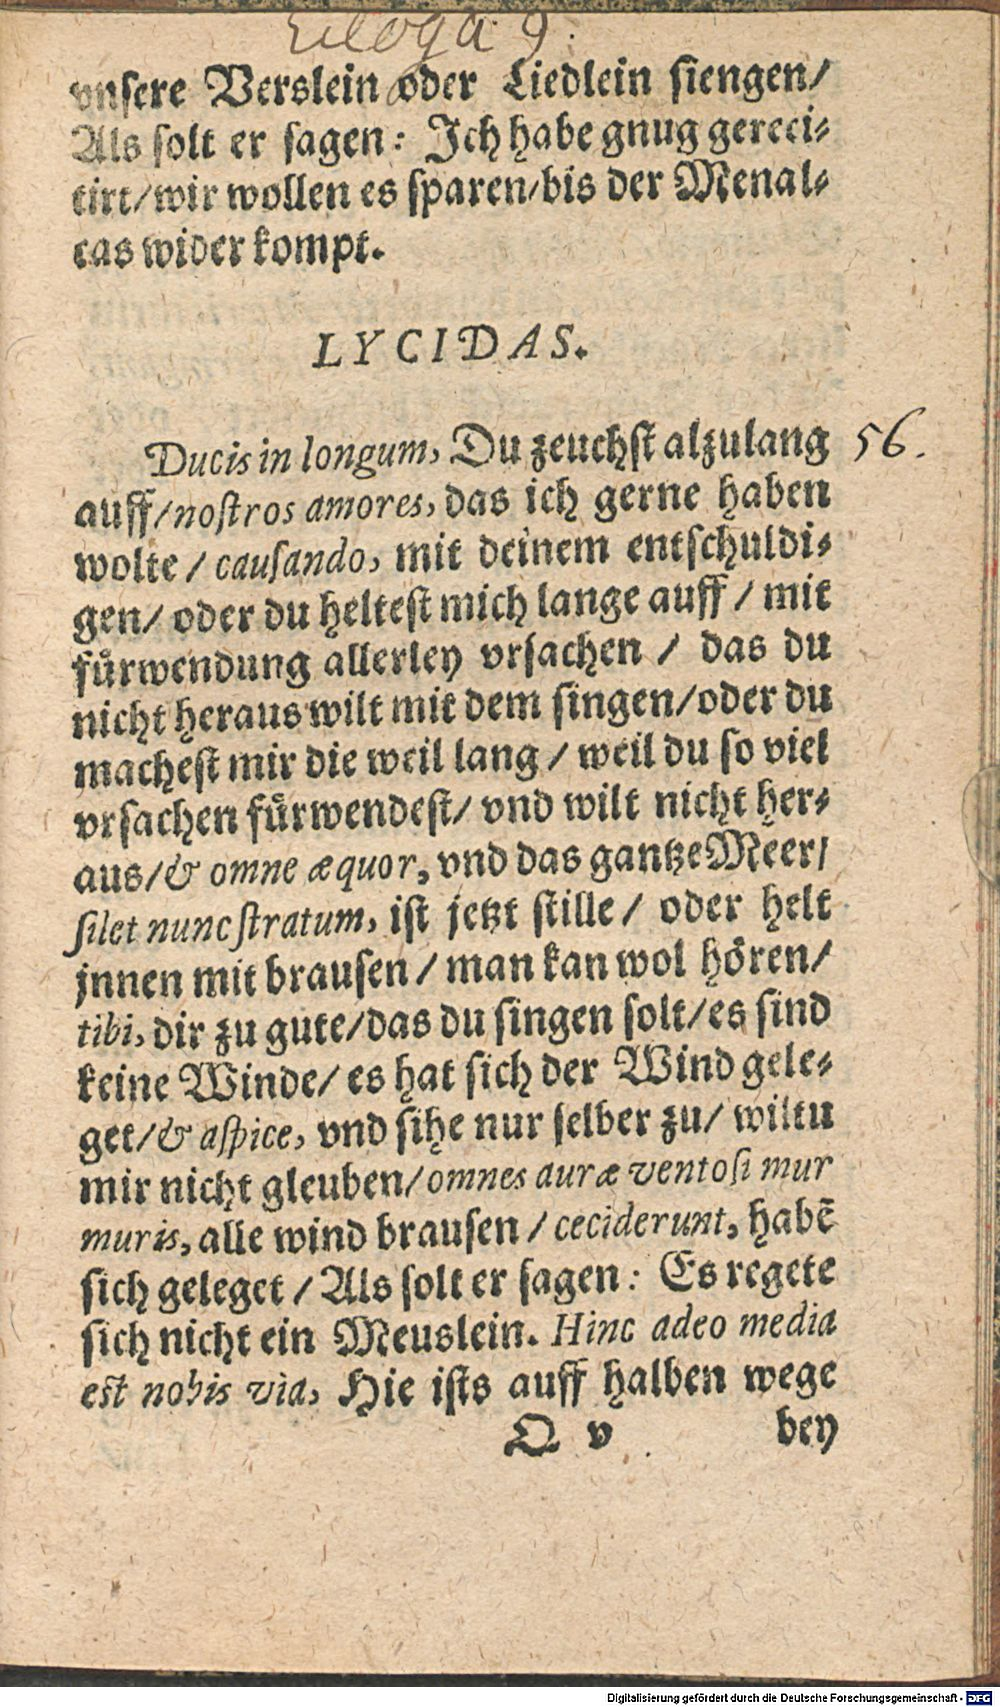 Ecloga 9.
vnsere Verslein oder Liedlein siengen/
Als solt er sagen: Jch habe gnug gereci⸗
tirt/wir wollen es sparen/bis der Menal⸗
cas wider kompt.
LYCIDAS.
Ducis in longum, Du zeuchst alzulang 56.
auff/nostros amores, das ich gerne haben
wolte / causando, mit deinem entschuldi⸗
gen/ oder du heltest mich lange auff / mit
fuͤrwendung allerley vrsachen / das du
nicht heraus wilt mit dem singen/oder du
machest mir die weil lang / weil du so viel
vrsachen fuͤrwendest/ vnd wilt nicht her⸗
aus/& omne æquor, vnd das gantze Meer/
silet nunc stratum, ist jetzt stille / oder helt
jnnen mit brausen / man kan wol hoͤren/
tibi, dir zu gute/das du singen solt/es sind
keine Winde/ es hat sich der Wind gele⸗
get/& aspice, vnd sihe nur selber zu/ wiltu
mir nicht gleuben/omnes auræ ventosi mur
muris, alle wind brausen / ceciderunt, habẽ
sich geleget / Als solt er sagen: Es regete
sich nicht ein Meuslein. Hinc adeo media
est nobis via, Hie ists auff halben wege
Q v bey
Digitalisierung gefördert durch die Deutsche Forschungsgemeinschaft - DFG